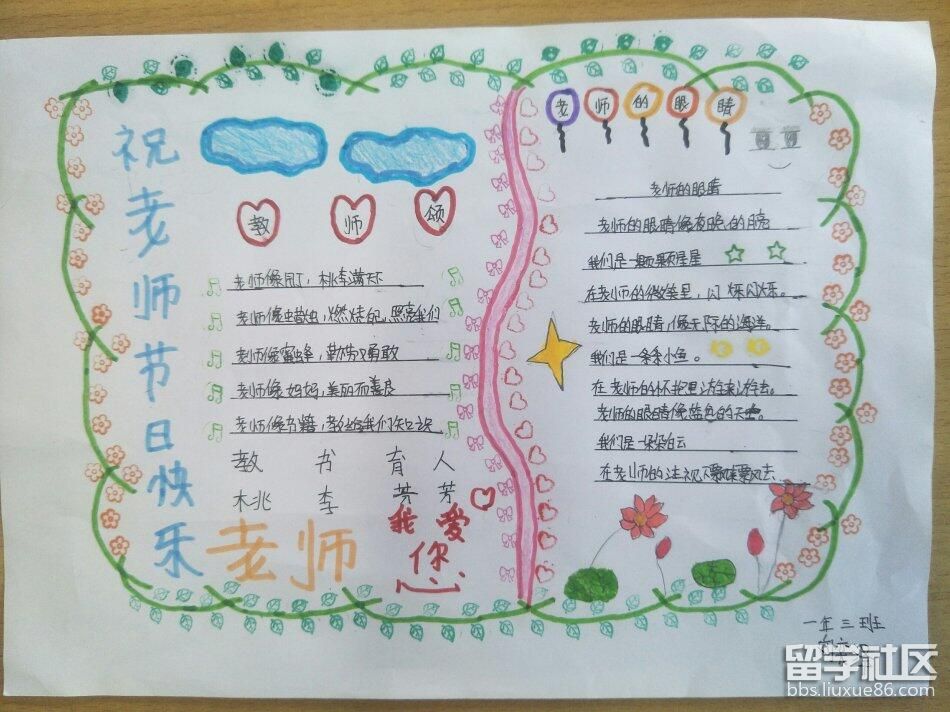 祝老师节日快乐
教师颂
老师像园丁，桃李满天下
老师像蜡烛，燃烧自己，照亮我们
老师像蜜蜂，勤劳又勇敢
老师像妈妈，美丽而善良
老师像书籍，教给我们知识
教书育人
桃李芬芳
老师
我爱
你
老师的眼睛
老师的眼睛
老师的眼睛像夜晚的月亮
我们是一颗颗星星
在老师的微笑里，闪烁闪烁。
老师的眼睛，像无际的海洋。
我们是一条条小鱼。
在老师的怀抱里游来游去。
老师的眼睛像蓝色的天空。
我们是一朵朵白云
在老师的注视下飘来飘去
一年三班
留学社区
bbs.liuxue86.com